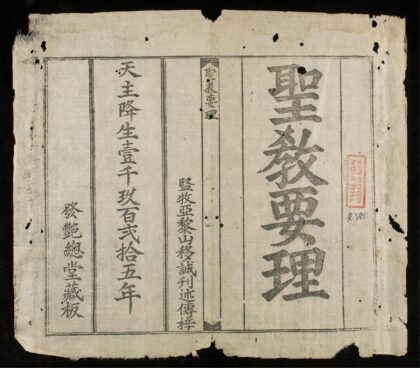 R.385
聖教要理
聖教要理
監牧亞黎山移誠刊述傳梓
天主降生壹千玖百弍拾五年
發艶總堂藏板